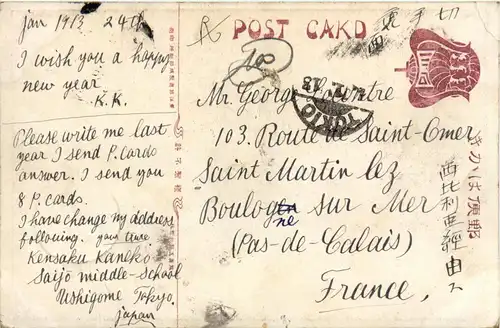 Jan 1913 24th
I wish you a happy
new year.
K.K.
Please write me last
year I send P. cards
answer. I send you
8 P. cards.
I have change my address
following. your true.
Kensaku Kaneko
Saijo middle-school
Ushigome Tokyo.
japan
POST CARD
TOKIO
Mr. George
103. Route de Saint-Omer
Saint Martin lez
Boulogne sur Mer
(Pas-de-Calais)
France,
西比利亜經由